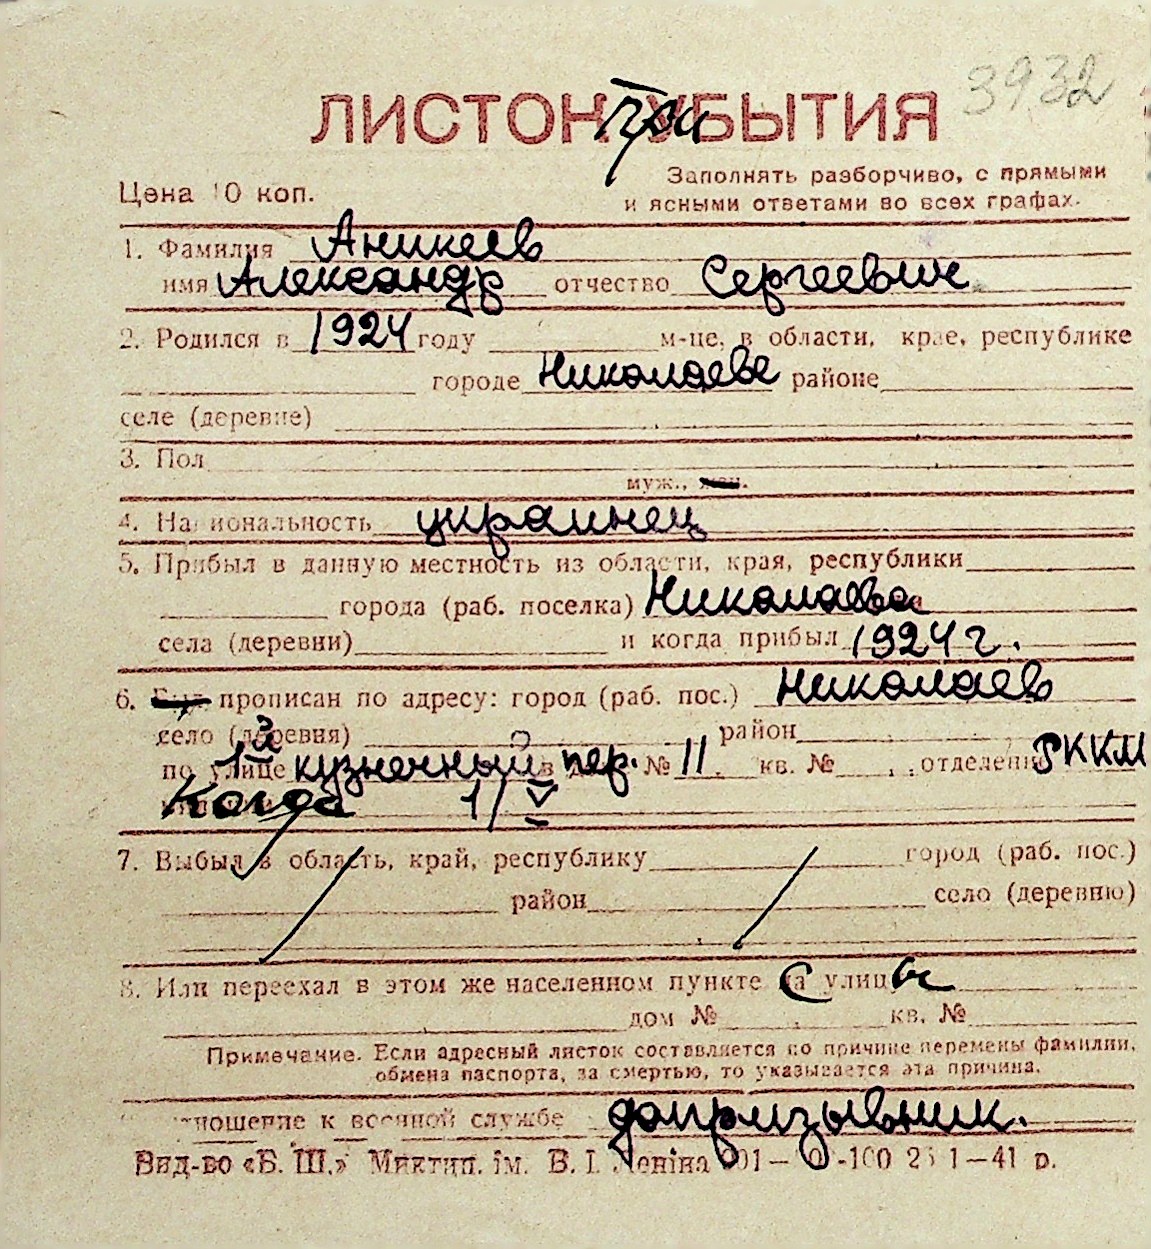 3932
ЛИСТОК при УБЫТИЯ
Цена 10 коп.
Заполнять разборчиво, с прямыми
и ясными ответами во всех графах.
1. Фамилия Аникеев
имя Александр отчество Сергеевич
2. Родился в 1924 году м-це, в области, крае, республике
городе Николаеве районе
селе (деревне)
3. Пол
муж., жен.
4. Национальность украинец
5. Прибыл в данную местность из области, края, республики
города (раб. поселка) Николаева
села (деревни) и когда прибыл 1924 г.
6. Был прописан по адресу: город (раб. пос.) Николаев
село (деревня) район
по улице 3й кузнечный пер. № 11 кв. № отделение РККМ
Когда 1/V
7. Выбыл в область, край, республику город (раб. пос.)
район село (деревню)
8. Или переехал в этом же населенном пункте с улицы
дом № кв. №
Примечание. Если адресный листок составляется по причине перемены фамилии,
обмена паспорта, за смертью, то указывается эта причина.
отношение к военной службе допризывник.
Вид-во «Б. Ш.» Миктип. ім. В. І. Леніна 1—41 р.